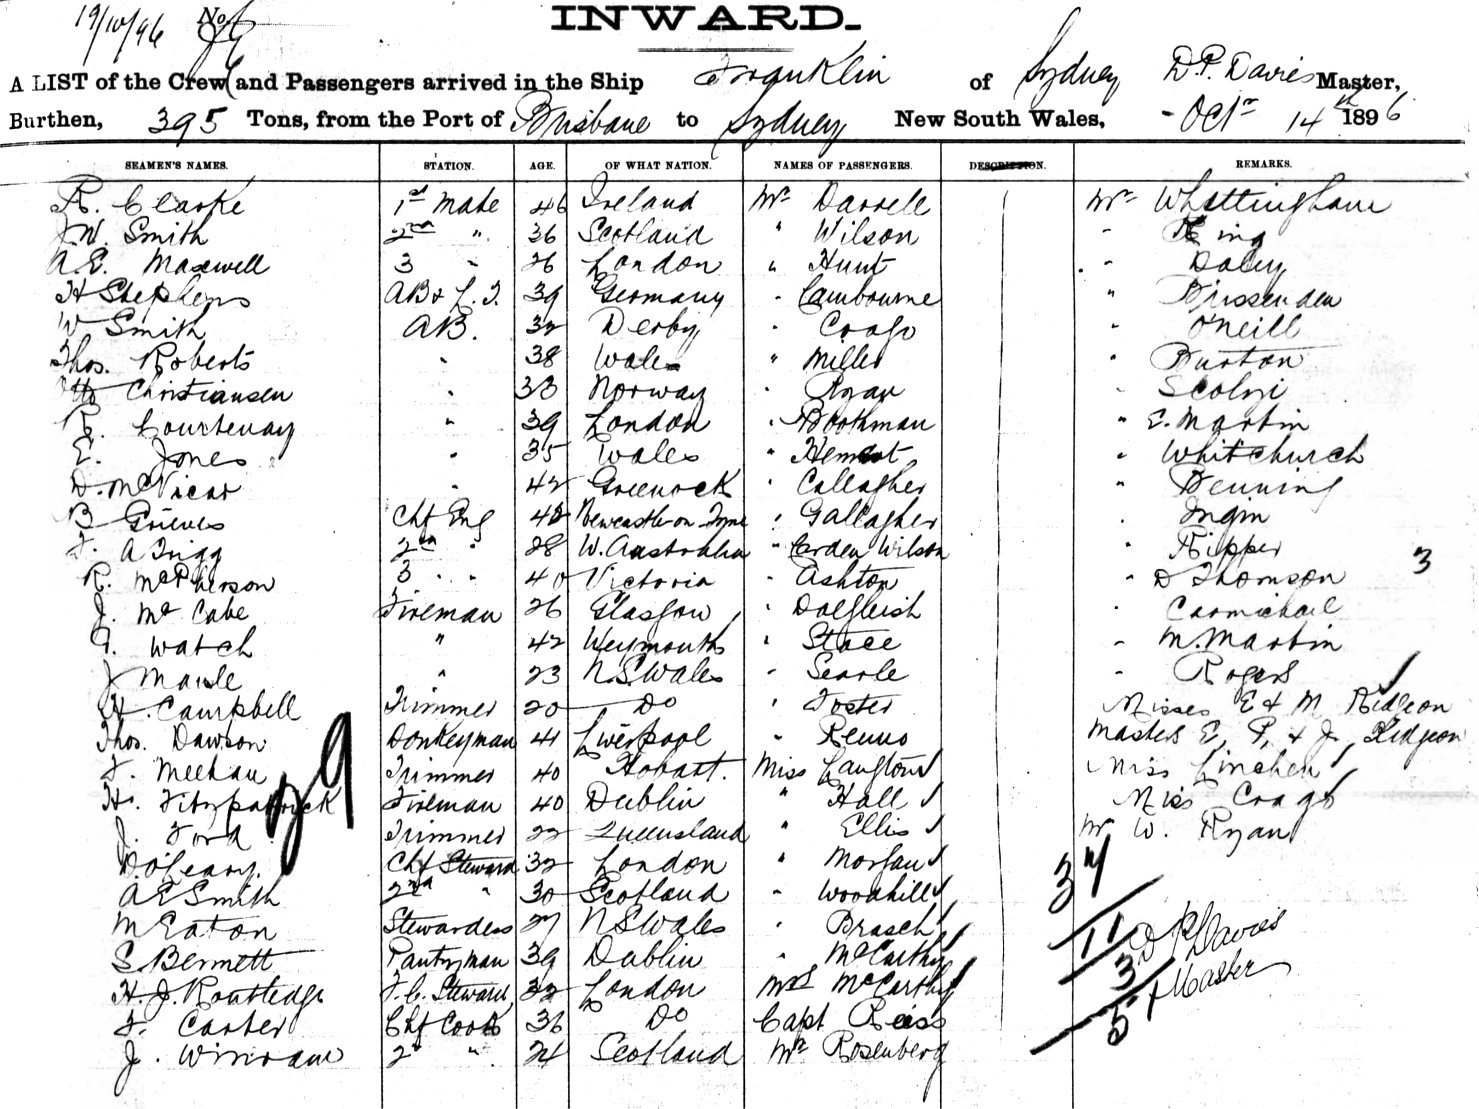 19/10/96 No
INWARD.
A LIST of the Crew and Passengers arrived in the Ship Franklin of Sydney D.P. Davies Master,
Burthen, 395 Tons, from the Port of Brisbane to Sydney New South Wales, - Octr 14th 1896
SEAMEN'S NAMES. STATION. AGE. OF WHAT NATION. NAMES OF PASSENGERS. DESCRIPTION. REMARKS.
R. Clarke 1st Mate 46 Ireland Mr Darrell Mr Whittingham
J.W. Smith 2nd " 36 Scotland " Wilson " King
A.E. Maxwell 3 " 26 London " Hunt " Daley
H Stephens AB & L.T. 39 Germany " Cambourne " Brissenden
W Smith AB. 32 Derby " Crago " O'Neill
Thos. Roberts " 38 Wales " Miller " Burton
Otto Christiansen " 33 Norway " Ryan "
R. Courtenay " 39 London " Boothman " E. Martin
E. Jones " 35 Wales " " Whitchurch
D. McVicar " 42 Greenock " Callagher " Benning
B Grieves Chf Eng 42 Newcastle on Tyne " Gallagher "
F. A Trigg 2nd " 28 W. Australia " Carden Wilson " Kipper 3
R. McPherson 3 " " 40 Victoria " Ashton " D Thomson
J. McCabe Fireman 26 Glasgow " Dalgleish " Carmichael
G. Watch " 42 Weymouth " Stace " M. Martin
J Maule " 23 N.S.Wales " Searle " Rogers
H. Campbell Trimmer 20 Do " Foster Misses E & M Ridgeon
Thos. Dawson Donkeyman 41 Liverpool " Renno Masters E, P, & J, Ridgeon
F. Meehan Trimmer 40 Hobart. Miss Langtons Miss Linehen
H. Fitzpatrick Fireman 40 Dublin " Hall Miss Crago
J. Ford Trimmer 22 Queensland " Ellis Mr W. Ryan
D. O'Leary. Chf Steward 32 London " Morgan 37
A E Smith 2nd " 30 Scotland " Woodhill
M Eaton Stewardess 27 N S Wales " Brasch 11
S. Bennett Pantryman 39 Dublin " McCarthy 3 D P Davies
H. J. Routledge F.C. Steward 32 London Mrs McCarthy Master
F. Carter Chf Cook 36 Do Capt Reiss 51
J. Winram 2 " 24 Scotland Mr Rosenberg